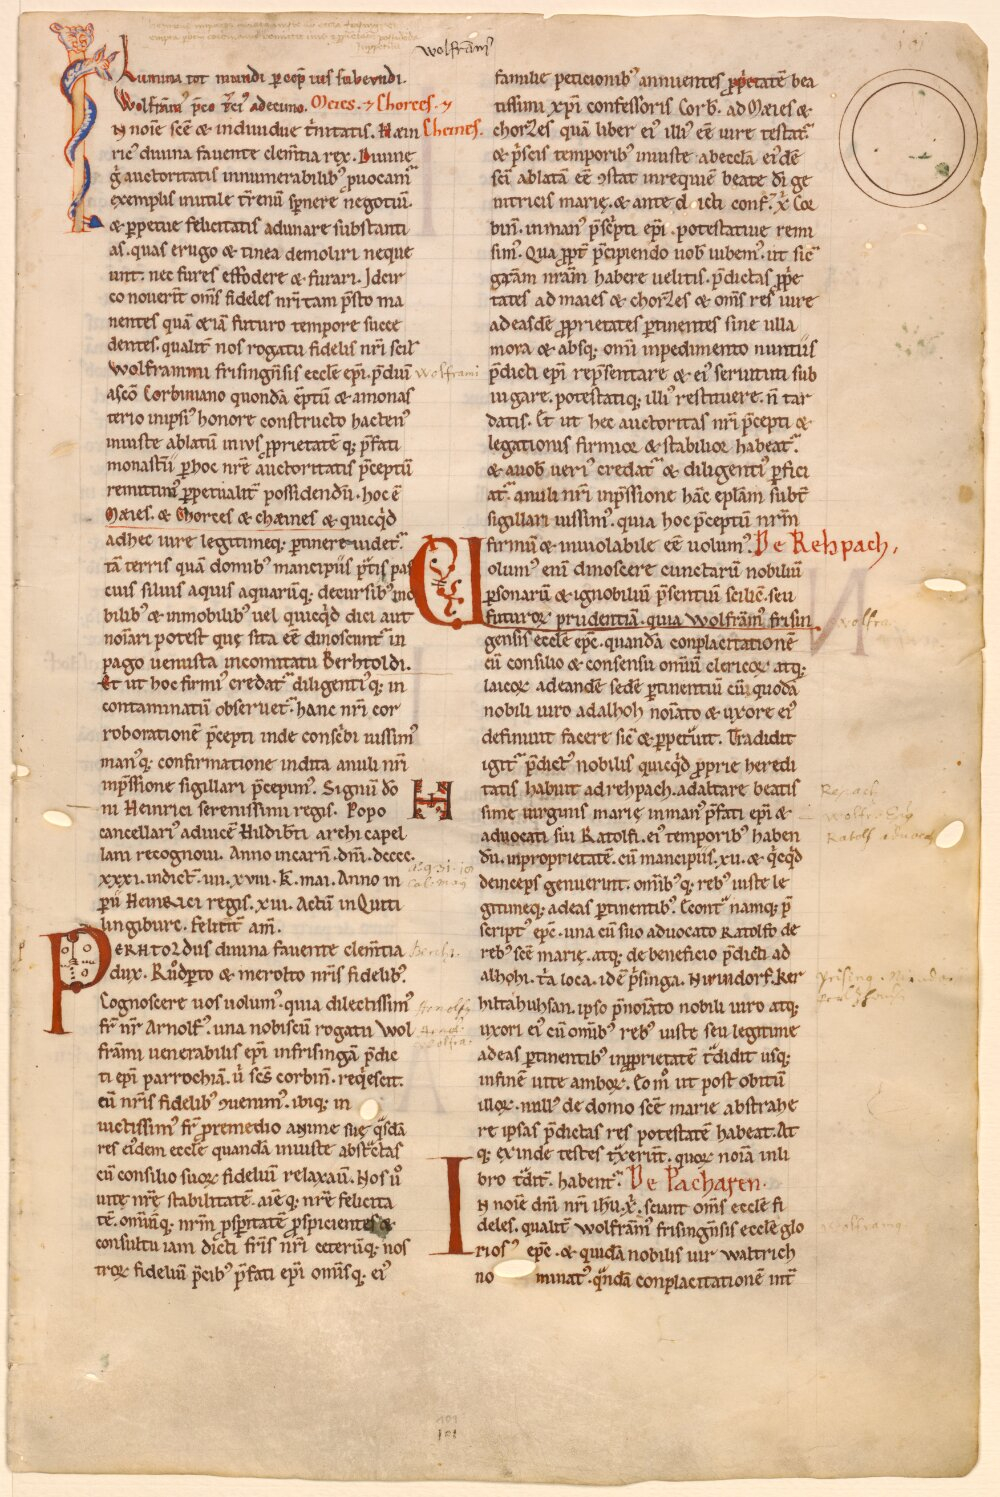 wolframꝰ
Lumina tot mundi p̲cep̄ iussubeundi.
Wolframꝰ p̄co t̄ciꝰ adecimo. Meies. ⁊ Chorces. ⁊
N noīe scē & indiuidue t̓nitatis. Hein Cheines.
ricꝰ diuina fauente clem̄tia rex. Diuine
q̓ auctoritatis innumerabilibꝰ ꝓuocam̄
exemplis inutile t̓renū sp̲nere negotiū.
& p̲petue felicitatis adunare substanti
as. quas erugo & tinea demoliri neque
unt. nec fures effodere & furari. Idcir
co nouerit om̄s fideles nr̄i tam p̄sto ma
nentes quā & iā futuro tempore succe
dentes. qualit̓ nos rogatu fidelis nr̄i scil̓
Wolframmi frisingn̄sis eccle ep̄i. p̄duū
ascō Corbiniano quondā ēptū & amonas
terio inipsiꝰ honore constructo hactenꝰ
iniuste ablatū iniꝰ ꝓprietatē q; p̄fati
monastii̓ p̲hoc nr̄e auctoritatis p̄ceptū
remittimꝰ p̲petualit̓ possidendū. hoc ē
Meies. & Chorces & cheines & quicq̓d
adhec iure legitimeq; p̲tinere uidet̓.
tā terris quā domibꝰ mancipiis p̓tis pas
cuis siluis aquis aquarūq; decursibꝰ mo
bilibꝰ & inmobilibꝰ uel quicq̓d dici aut
noīari potest que sita eē dinoscunt̓ in
pago uenusta incomitatu Berhtoldi.
Et ut hoc firmiꝰ credat̓ diligentiꝰ q; in
contaminatū obseruet̓. hanc nr̄i cor
roborationē p̄cepti inde consc̓bi iussimꝰ
manꝰq; confirmatione indita anuli nr̄i
inp̄ssione sigillari p̄cepimꝰ. Signū do
ni Heinrici serenissimi regis. Popo
cancellariꝰ aduicē Hildib̄ti archi capel
lani recognoui. Anno incarn̄. dn̄i. dcccc.
xxxi. indict̄. iiii. xviii. k̄. mai. Anno in
p̲ii Heinrici regis. xiii. Actū in Quiti
lingiburc. felicit̓ am̄.
PERHTOLdus diuina fauente clem̄tia
dux. Rūdp̲to & merolto nr̄is fidelibꝰ.
Cognoscere uos uolumꝰ. quia dilectissimꝰ
fr̄ nr̄ Arnolfꝰ. una nobiscū rogatu Wol
frāmi uenerabilis ep̄i infrisingā p̄dic
ti ep̄i parrochiā. u̓ scs̄ corbin̄. req̓escit.
cū nr̄is fidelibꝰ ꝯuenimꝰ. ibiq; in
uictissimꝰ fr̄ ꝓremedio anime sue q̓sdā
res eidem eccle quandā iniuste abst̓ctas
cū consilio suoꝝ fideliū relaxaū. Nos u̓
uite nr̄e stabilitatē. aīeq; nr̄e felicita
tē. omīuq; nr̄m ꝓsp̲itatē ꝓspicientes &
consultu iam dicti fr̄is nr̄i ceterūq; nos
troꝝ fideliū p̄cibꝰ p̄fati ep̄i om̄isq; eiꝰ
familie peticionibꝰ annuentes ꝓp̓etatē bea
tissimi xp̄i confessoris Corb̄. ad Meies &
chorzes quā liber eiꝰ illiꝰ eē iure testat̓
& p̄scis temporibꝰ iniuste abecclā eidē
scī ablatā eē ꝯstat inrequiē beate dī ge
nitricis marie. & ante dicti conf. x̄ Cor
bin̄. inmanꝰ p̄sc̓pti ep̄i. potestatiue remi
simꝰ. Qua ꝓpt̓ p̄cipiendo uob̄ iubemꝰ. ut sic̄
gr̄am nr̄am habere uelitis. p̄dictas ꝓp̓e
tates ad maies & chorzes & om̄s res iure
adeasdē ꝓprietates p̲tinentes sine ulla
mora & absq; omī inpedimento nuntiis
p̄dicti ep̄i rep̄sentare & eiꝰ seruituti sub
iugare. potestatiq; illiꝰ restituere. n̄ tar
datis. Et ut hec auctoritas nr̄i p̄cepti &
legationis firmior & stabilior habeat̓.
& auob̄ ueriꝰ credat̓ & diligentiꝰ p̲fici
at̓. anuli nr̄i inp̄ssione hāc ep̄lam subt̓
sigillari iussimꝰ. quia hoc p̄ceptū nr̄m
firmū & inuiolabile eē uolumꝰ. De Rehpach.
Uolumꝰ enī dinoscere cunctarū nobiliū
p̲sonarū & ignobiliū p̄sentiū scilicē. seu
futuroꝝ prudentiā. quia Wolframꝰ frisin
gensis eccle ep̄c. quandā conplacitationē
cū consilio & consensu omiū clericoꝝ atq;
laicoꝝ adeandē sedē p̲tinentiū cū quodā
nobili uiro adalhoh noīato & uxore eiꝰ
definiuit facere sic̄ & p̲petuit. Tradidit
igit̓ p̄dictꝰ nobilis quicq̓d ꝓprie heredi
tatis habuit ad rehpach. adaltare beatis
sime uirginis marie inmanꝰ p̄fati ep̄i &
aduocati sui Ratolfi. ei temporibꝰ haben
dū. inproprietatē. cū mancipiis. xv. & q̓cq̓d
deinceps genuerint. omībꝰq; rebꝰ iuste le
gitimeq; adeas p̲tinentibꝰ. Econt̓ namq; p̄
scriptꝰ ep̄c. una cū suo aduocato Ratolfo de
rebꝰ scē marie. atq; de beneficio p̄dicti ad
alhohi. t̓a loca. idē p̄singa. Niwindorf. Ker
hiltahuhsan. ipso p̄noīato nobili uiro atq;
uxori eiꝰ cū omībꝰ rebꝰ iuste seu legitime
adeas p̲tinentibꝰ inꝓprietatē t̓didit usq;
infinē uite amboꝝ. Eo m̊ ut post obitū
illoꝝ. nullꝰ de domo scē marie abstrahe
re ipsas p̄dictas res potestatē habeat. At
q; exinde testes t̓xerūt. quoꝝ noīa inli
bro t̓dit̄. habent̓. De Pacharen.
IN noīe dn̄i nr̄i ih̄u. x̄. sciant om̄s eccle fi
deles. qualit̓ wolframꝰ frisingn̄sis eccle glo
riosꝰ ep̄c. & quidā nobilis uir waltrich
nominatꝰ. q̓ndā conplacitationē int̓
wolframi
Ratolf aduocat
101
101